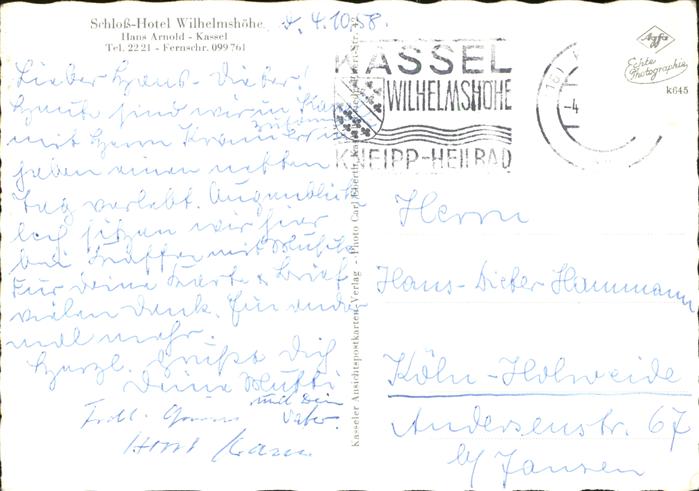 Schloß-Hotel Wilhelmshöhe
Hans Arnold - Kassel
Tel. 2221 - Fernschr. 099761
d. 4.10.58.
Lieber Hans-Dieter!
Heute sind wir in
mit Herrn zusammen
haben einen netten
Tag verlebt. Augenblick-
lich sitzen wir hier
bei Kaffee mit Musik.
Für deine Karte & Brief
vielen Dank. Ein ander-
mal mehr.
Herzl. grüßt Dich
Deine Mutti
und Dein
Vater.
Frdl. Gruss
Horst
Kasseler Ansichtspostkarten-Verlag - Photo Carl Eberth, Kassel
KASSEL
WILHELMSHÖHE
KNEIPP-HEILBAD
-4
Agfa
Echte
Photographie
k645
Herrn
Hans-Dieter Hammann
Köln-Holweide
Andersenstr. 67
b/ Jansen